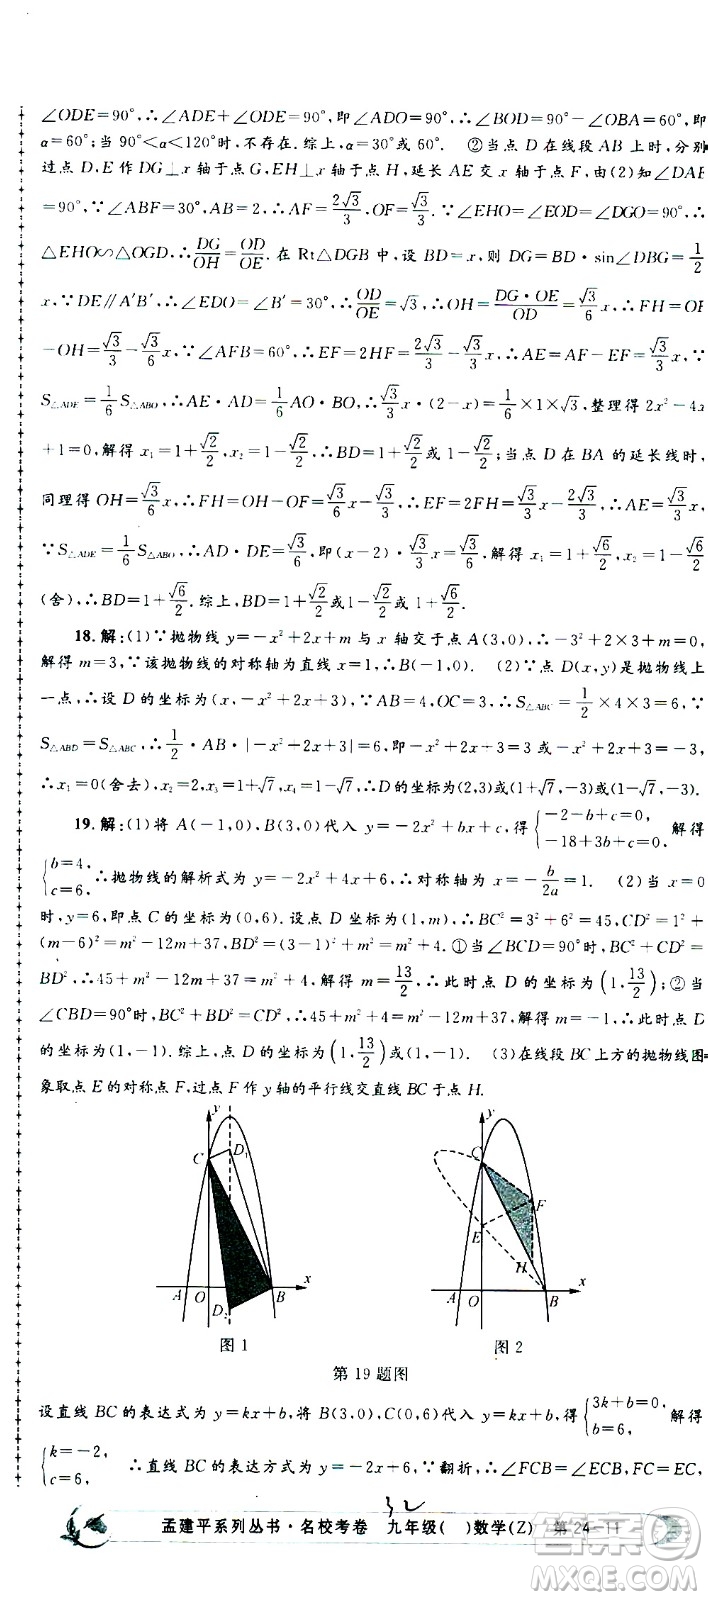 ∠ODE=90°,∴∠ADE+∠ODE=90°,即∠ADO=90°,∴∠BOD=90°-∠OBA=60°,即
α=60°;当 90°<α<120°时,不存在.综上,α=30°或 60°. ②当点 D 在线段 AB 上时,分别
过点 D,E 作 DG⊥x 轴于点 G,EH⊥x 轴于点 H,延长 AE 交 x 轴于点 F,由(2)知∠DAE
=90°,∵∠ABF=30°,AB=2,∴AF=2√3/3,OF=√3/3.∵∠EHO=∠EOD=∠DGO=90°,∴
△EHO∽△OGD,∴DG/OH=OD/OE. 在 Rt△DGB 中,设 BD=x,则 DG=BD·sin∠DBG=1/2
x,∵DE∥A′B′,∴∠EDO=∠B′=30°,∴OD/OE=√3,∴OH=DG·OE/OD=√3/6 x,∴FH=OF
-OH=√3/3-√3/6 x,∵∠AFB=60°,∴EF=2HF=2√3/3-√3/3 x,∴AE=AF-EF=√3/3 x,∵
S△ADE=1/6 S△ABO,∴AE·AD=1/6 AO·BO,∴√3/3 x·(2-x)=1/6×1×√3,整理得 2x²-4x
+1=0,解得 x₁=1+√2/2,x₂=1-√2/2,∴BD=1+√2/2或 1-√2/2;当点 D 在 BA 的延长线时,
同理得 OH=√3/6 x,∴FH=OH-OF=√3/6 x-√3/3,∴EF=2FH=√3/3 x-2√3/3,∴AE=√3/3 x,
∵S△ADE=1/6 S△ABO,∴AD·DE=√3/6,即(x-2)·√3/3 x=√3/6,解得 x₁=1+√6/2,x₂=1-√6/2
(舍),∴BD=1+√6/2.综上,BD=1+√2/2或 1-√2/2或 1+√6/2.
18. 解:(1)∵抛物线 y=-x²+2x+m 与 x 轴交于点 A(3,0),∴-3²+2×3+m=0,
解得 m=3,∵该抛物线的对称轴为直线 x=1,∴B(-1,0). (2)∵点 D(x,y)是抛物线上
一点,∴设 D 的坐标为(x,-x²+2x+3),∵AB=4,OC=3,∴S△ABC=1/2×4×3=6,∵
S△ABD=S△ABC,∴1/2·AB·|-x²+2x+3|=6,即-x²+2x+3=3 或-x²+2x+3=-3,
∴x₁=0(舍去),x₂=2,x₃=1+√7,x₄=1-√7,∴D 的坐标为(2,3)或(1+√7,-3)或(1-√7,-3).
19. 解:(1)将 A(-1,0),B(3,0)代入 y=-2x²+bx+c,得{-2-b+c=0, -18+3b+c=0. 解得
{b=4, c=6. ∴抛物线的解析式为 y=-2x²+4x+6,∴对称轴为=-b/2a=1. (2)当 x=0
时,y=6,即点 C 的坐标为(0,6).设点 D 坐标为(1,m),∴BC²=3²+6²=45,CD²=1²+
(m-6)²=m²-12m+37,BD²=(3-1)²+m²=m²+4.①当∠BCD=90°时,BC²+CD²=
BD²,∴45+m²-12m+37=m²+4,解得 m=13/2,∴此时点 D 的坐标为(1,13/2);②当
∠CBD=90°时,BC²+BD²=CD²,∴45+m²+4=m²-12m+37,解得 m=-1,∴此时点 D
的坐标为(1,-1).综上,点 D 的坐标为(1,13/2)或(1,-1). (3)在线段 BC 上方的抛物线图
象取点 E 的对称点 F,过点 F 作 y 轴的平行线交直线 BC 于点 H.
y C D₁ A O B x D₂
y C F E H A O B x
图 1 图 2
第 19 题图
设直线 BC 的表达式为 y=kx+b,将 B(3,0),C(0,6)代入 y=kx+b,得{3k+b=0, b=6, 解得
{k=-2, c=6. ∴直线 BC 的表达方式为 y=-2x+6,∵翻折,∴∠FCB=∠ECB,FC=EC,
32
孟建平系列丛书·名校考卷 九年级( )数学(Z) 第 24-11
作业精灵
MXQE.COM